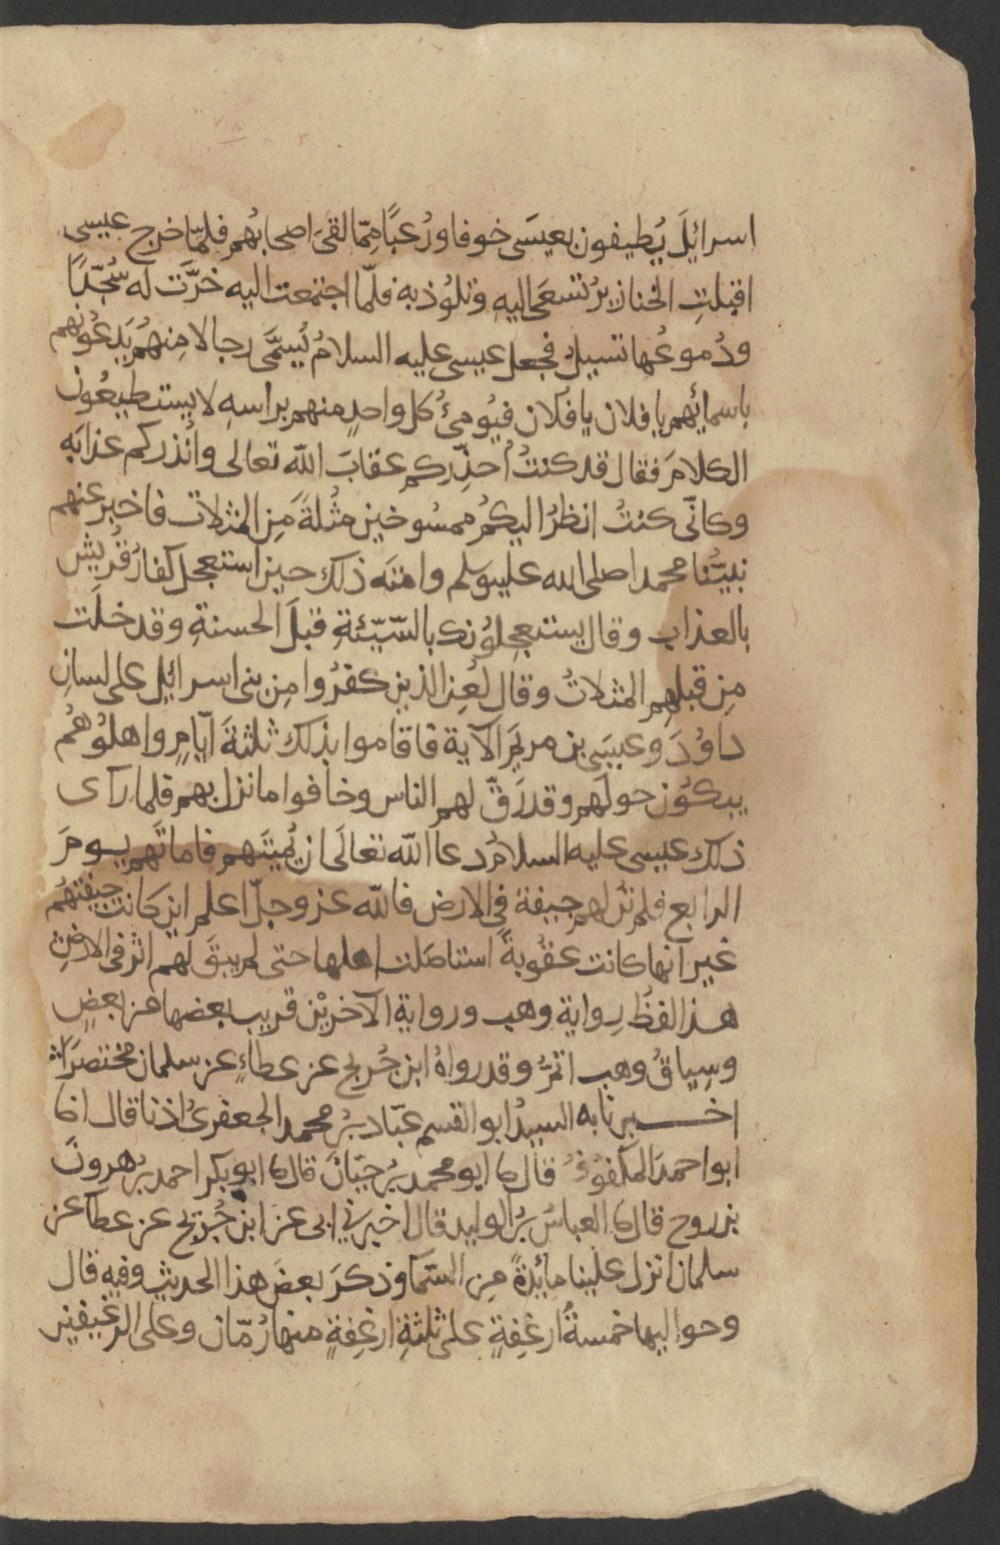 اسرائيلَ يُطيفون بعيسَى خوفا ورُعبًا مِمّا لقىَ اصحابُهم فلمّا خرج عيسى
اقبلتِ الخنازيرُ تسعَى اليهِ وتلُوذ به فلمّا اجتمعت اليه خرَّت له سُجّدًا
ودُموعُها تسيلُ فجعل عيسى عليه السلامُ يُسَمَّى رجالا مِنهُم يَدعُونهم
باسمائِهم يا فلان يا فُلان فيُومئُ كل واحدٍ منهم براسهِ لا يستطيعُون
الكلامَ فقال قد كنتُ أحذِّركم عقابَ الله تعالى وانذركم عذابَه
وكانّى كنتُ انظرُ اليكُم ممسُوخين مثُلةً مَنِ المثلات فاخبر عنهم
نبيّنا محمد صلى الله عليه وسلم وامته ذلك حين استعجل كفارُ قُريش
بالعذاب وقال يستعجِلُونك بالسّيّئةِ قبلَ الحسنةِ وقد خلَت
مِن قبلهِم المثلاتُ وقال لُعِن الذين كفرُوا مِن بنى اسرائيل على لسانِ
داوُدَ وعيسَى بن مريمَ الآية فاقاموا بذلك ثلثةَ ايّامٍ واهلُوهُم
يبكُون حولَهم وقد رَقّ لهم الناس وخافوا ما نزل بهم فلما رآى
ذلك عيسى عليه السلامُ دعا الله تعالَى ان يُميتَهم فاماتَهم يومَ
الرابع فلم تُر لهم جيفة فى الارض فالله عز وجلّ اعلم اين كانت جيفتهُم
غير انها كانت عقُوبةً استاصَلت اهلها حتى لم يبقَ لهم اثر فى الارض
هذا لفظُ رِواية وهب ورواية الآخرَيْن قريب بعضها من بعضٍ
وسياقُ وهب اتمُّ وقد رواهُ ابن جُريج عن عطاءٍ عن سلمان مختصرًا
اخبرنا به السيدُ ابو القسم عبّاد بنُ محمد الجعفرىُ اذنا قال انا
ابو احمدَ المكفُوفُ قال نا ابو محمد بنُ حيّانَ قال نا ابو بكر احمد بن هرونَ
بن روح قال نا العباسُ بنُ الوليد قال اخبرني ابى عن ابن جُريج عن عطا عن
سلمان انزل علينا مائدةٌ مِن السّما وذكرَ بعضَ هذا الحديثِ وفيه قال
وحواليها خمسةُ ارغفةٍ على ثلثةِ ارغفةٍ منها رُمّان وعلى الرغيفين